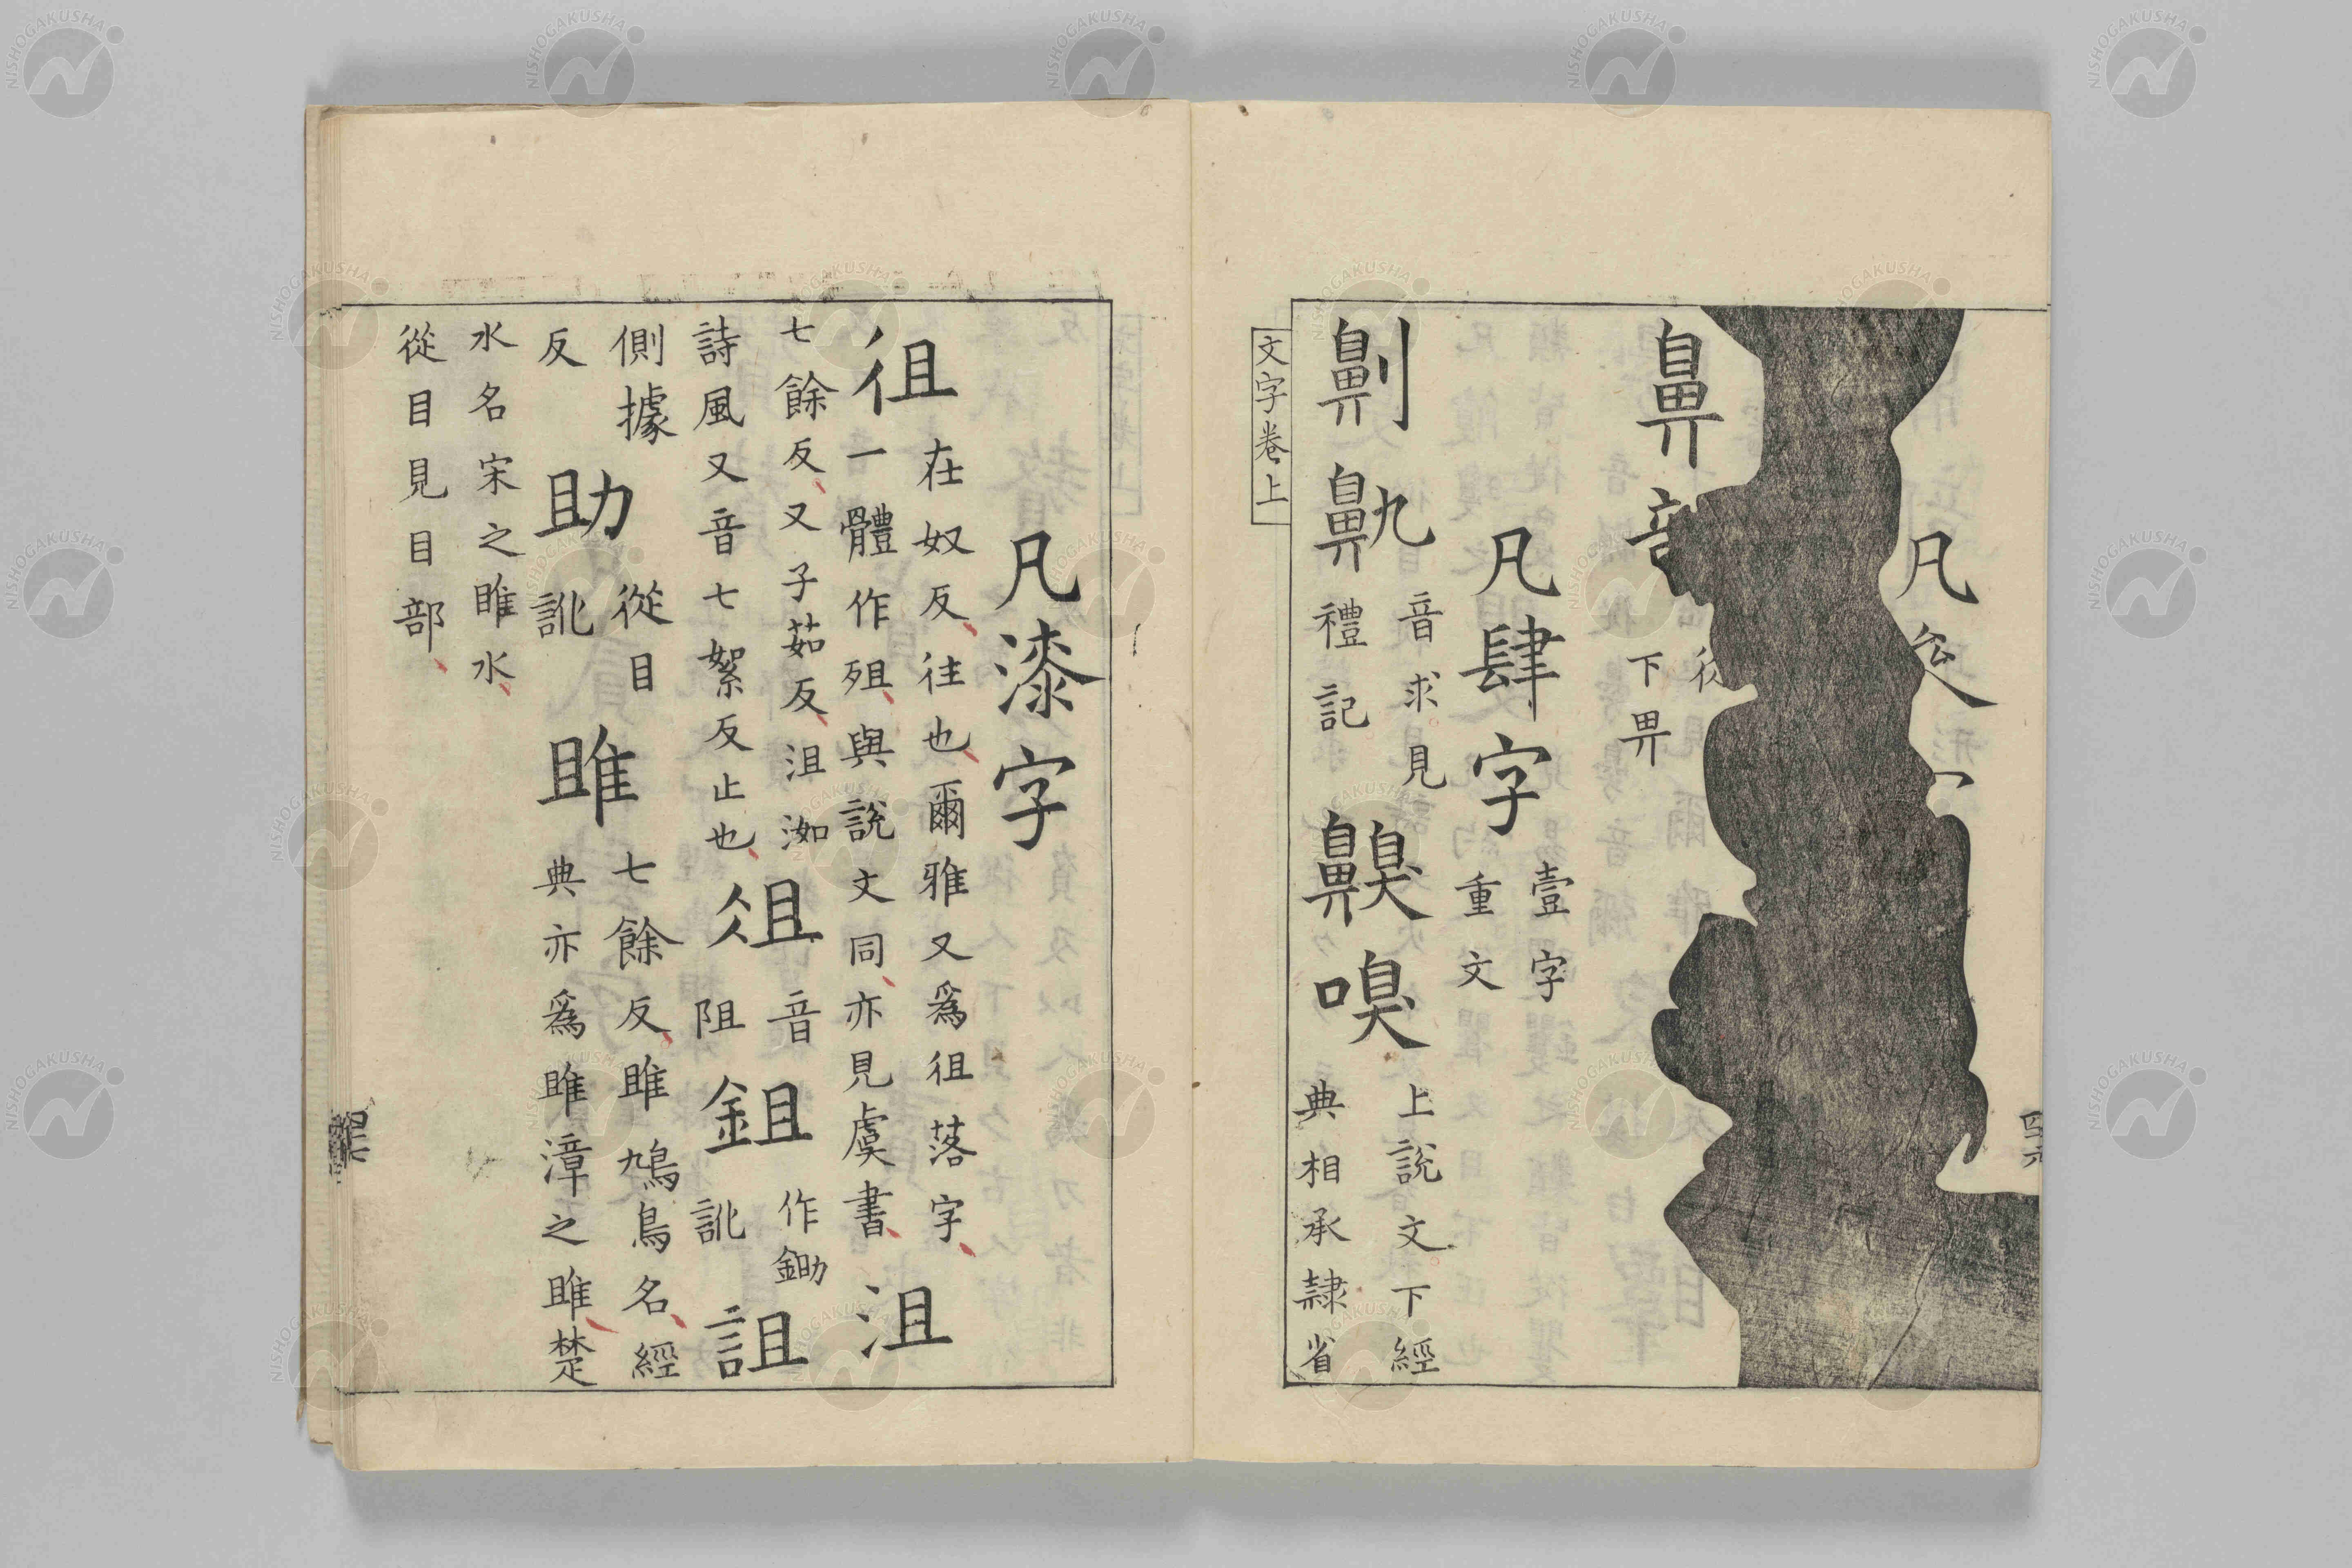 凡
鼻部
從
下畀
凡肆字 壹字
重文
劓鼽 音求見
禮記
齅嗅 上說文下經
典相承隷省
文字卷上
凡漆字
徂 在奴反往也爾雅又爲徂落字
一體作殂與說文同亦見虞書
沮
七餘反又子茹反沮洳
詩風又音七絮反止也
俎 音
阻
鉏 作鋤
訛
詛
側據
反
助 從目
訛
雎 七餘反雎鳩鳥名經
典亦爲雎漳之雎楚
水名宋之睢水
從目見目部
NISHOGAKUSHA